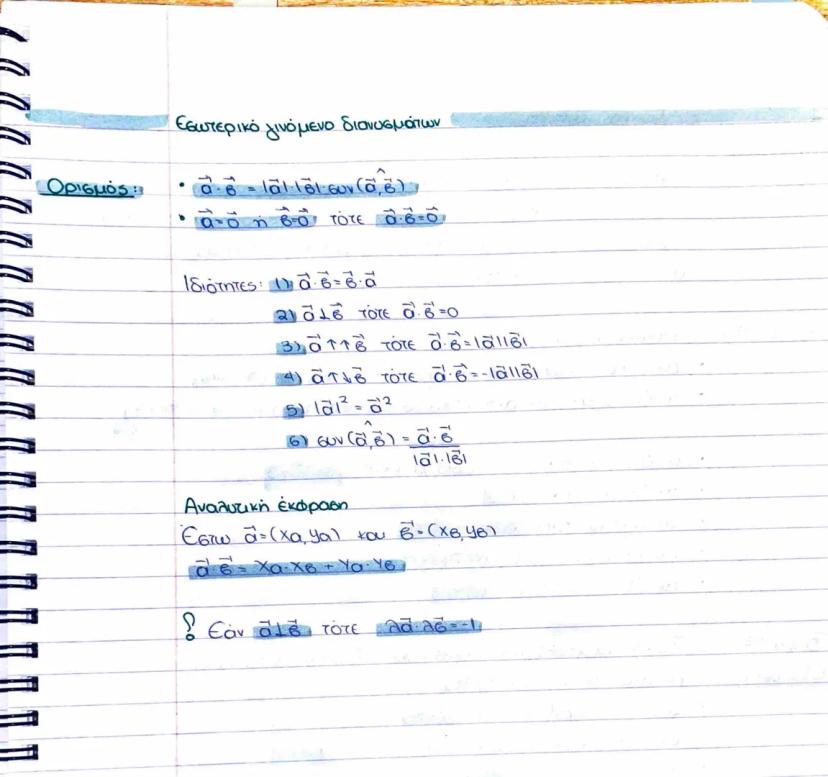 Εσωτερικό γινόμενο διανυσμάτων
Ορισμός: • a⃗·β⃗ = |a⃗|·|β⃗|·συν(a⃗,β⃗)^
• a⃗=0⃗ ή β⃗=0⃗ τότε a⃗·β⃗=0
Ιδιότητες: 1) a⃗·β⃗=β⃗·a⃗
2) a⃗⊥β⃗ τότε a⃗·β⃗=0
3) a⃗↑↑β⃗ τότε a⃗·β⃗=|a⃗||β⃗|
4) a⃗↑↓β⃗ τότε a⃗·β⃗=-|a⃗||β⃗|
5) |a⃗|²=a⃗²
6) συν(a⃗,β⃗)^ = a⃗·β⃗
|a⃗|·|β⃗|
Αναλυτική έκφραση
Έστω a⃗=(xa,ya) και β⃗=(xβ,yβ)
a⃗·β⃗= xa·xβ + ya·yβ
! Εάν a⃗⊥β⃗ τότε λa⃗·λβ⃗=-1